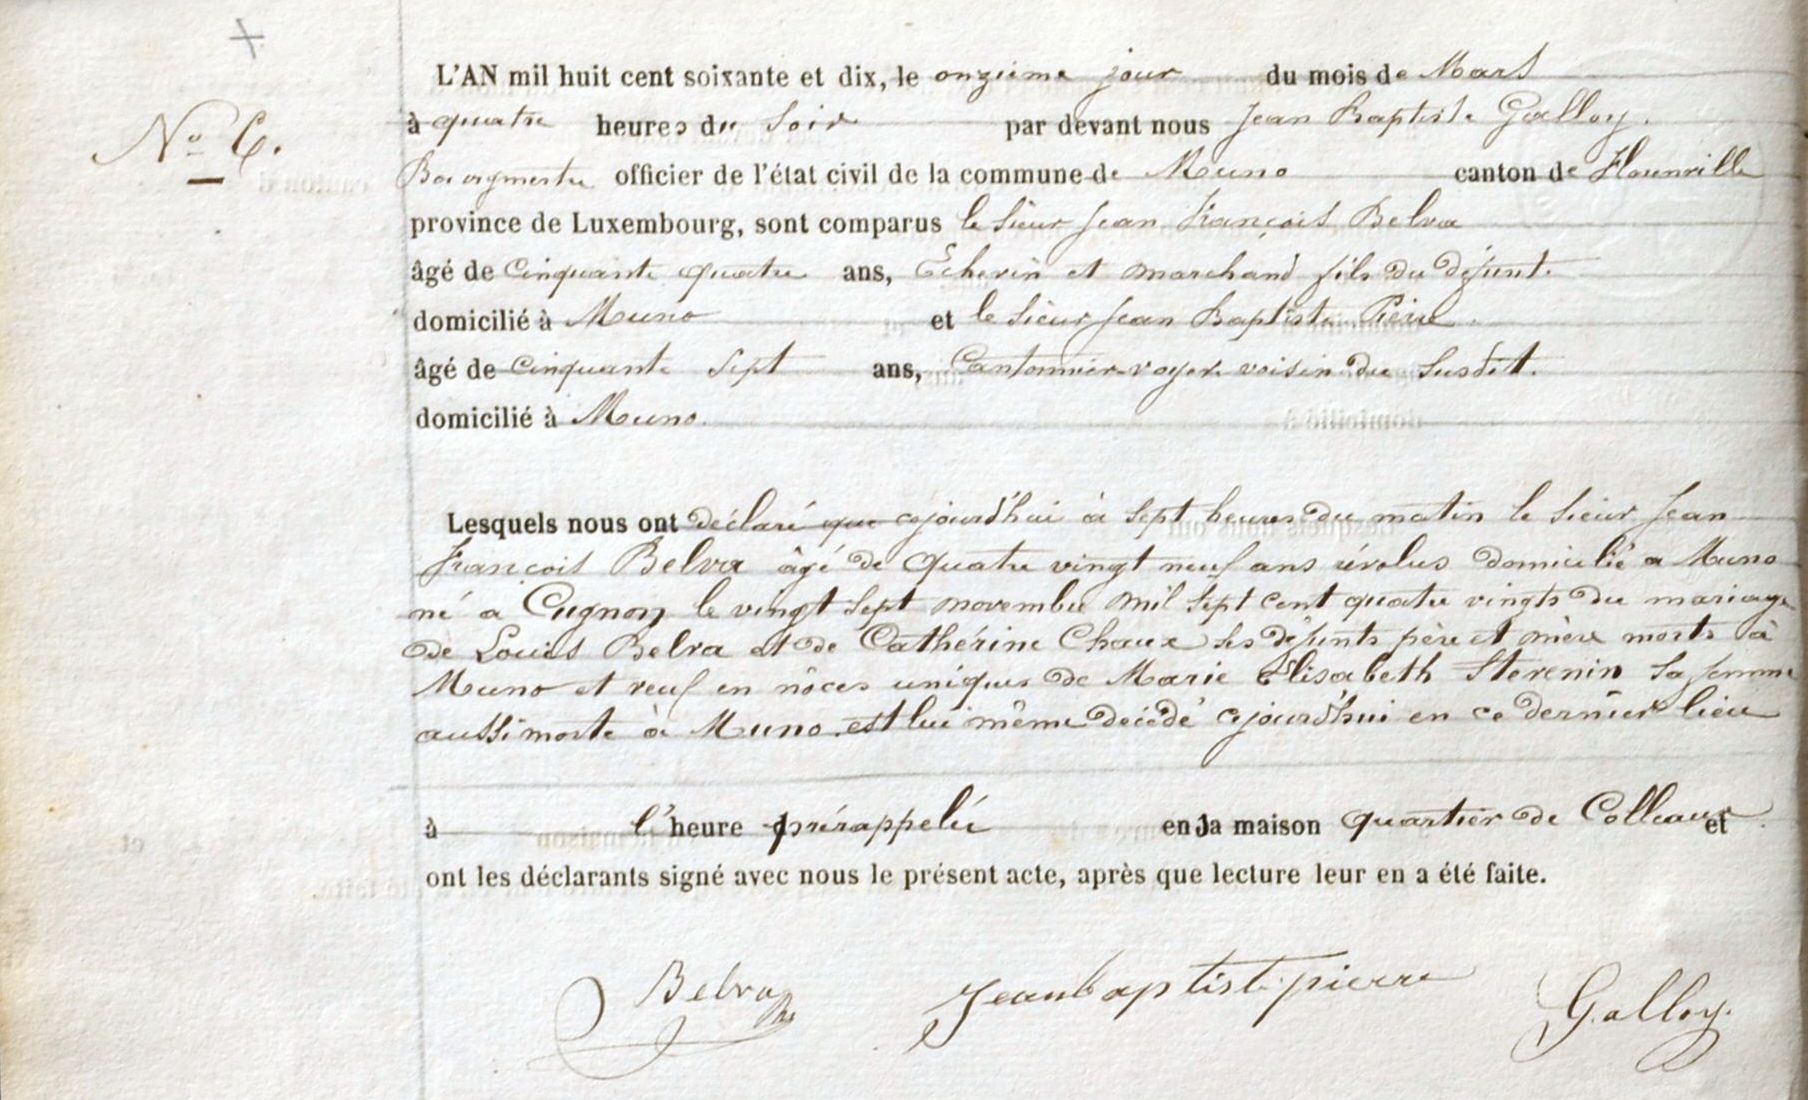 L'AN mil huit cent soixante et dix, le onzième jour du mois de Mars
à quatre heures du Soir par devant nous Jean Baptiste Galloy.
N° 6.
Bourgmestre officier de l'état civil de la commune de Muno canton de Florenville
province de Luxembourg, sont comparus le Sieur Jean François Belva
âgé de cinquante quatre ans, Echevin et marchand fils du défunt.
domicilié à Muno et le Sieur Jean Baptiste Pierre.
âgé de cinquante Sept ans, Cantonnier-voyer voisin du Susdit.
domicilié à Muno.
Lesquels nous ont déclaré que cejourd'hui à Sept heures du matin le Sieur Jean
François Belva âgé de Quatre vingt neuf ans révolus domicilié a Muno
né a Cugnon le vingt Sept novembre mil Sept cent quatre vingts du mariage
de Louis Belva et de Cathérine Chaux ses défunts père et mère morts à
Muno et veuf en nôces uniques de Marie Elisabeth Stevenin Sa femme
aussi morte à Muno. est lui même décédé cejourd'hui en ce dernier lieu
à l'heure prérappelée en la maison quartier de Colleaux et
ont les déclarants signé avec nous le présent acte, après que lecture leur en a été faite.
Belva Jeanbaptiste pierre Galloy.